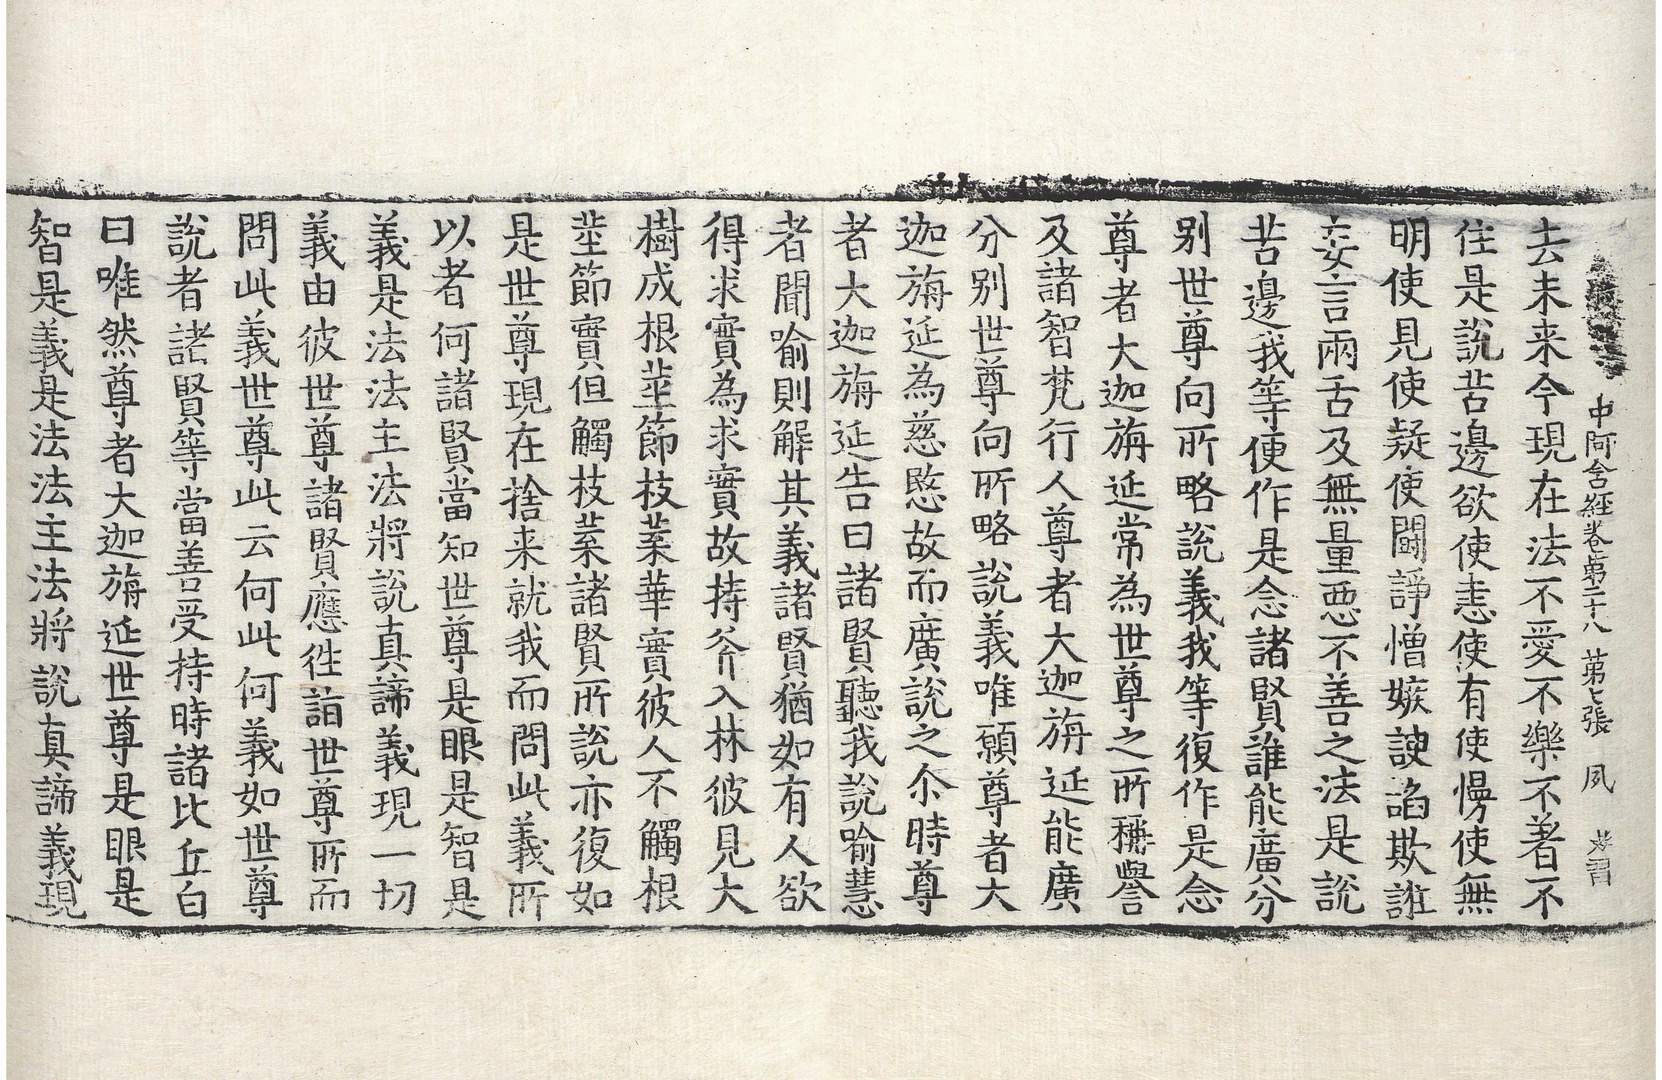 中阿含經卷第二十八　第七張　夙
去未来今現在法不愛不樂不著不
住是說苦邊欲使恚使有使慢使無
明使見使疑使鬪諍憎嫉諛諂欺誑
妄言兩舌及無量惡不善之法是說
苦邊我等便作是念諸賢誰能廣分
别世尊向所略說義我等復作是念
尊者大迦旃延常為世尊之所稱譽
及諸智梵行人尊者大迦旃延能廣
分别世尊向所略說義唯願尊者大
迦旃延為慈愍故而廣說之尒時尊
者大迦旃延告曰諸賢聽我說喻慧
者聞喻則解其義諸賢猶如有人欲
得求實為求實故持斧入林彼見大
樹成根莖節枝葉華實彼人不觸根
莖節實但觸枝葉諸賢所說亦復如
是世尊現在捨来就我而問此義所
以者何諸賢當知世尊是眼是智是
義是法法主法將說真諦義現一切
義由彼世尊諸賢應往詣世尊所而
問此義世尊此云何此何義如世尊
說者諸賢等當善受持時諸比丘白
曰唯然尊者大迦旃延世尊是眼是
智是義是法法主法將說真諦義現